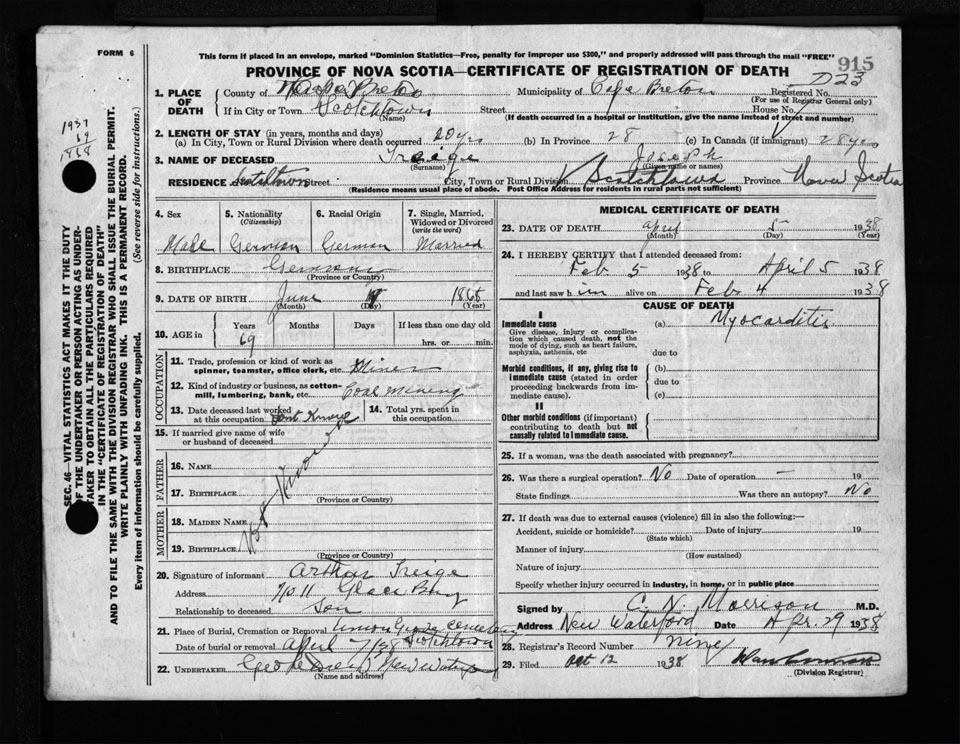 FORM 6
This form if placed in an envelope, marked "Dominion Statistics—Free, penalty for improper use $300," and properly addressed will pass through the mail "FREE"
915
PROVINCE OF NOVA SCOTIA—CERTIFICATE OF REGISTRATION OF DEATH
D23
1. PLACE OF DEATH
County of Cape Breton Municipality of Cape Breton Registered No.
(For use of Registrar General only)
If in City or Town Scotchtown Street House No.
(Name) (If death occurred in a hospital or institution, give the name instead of street and number)
1937
69
1868
2. LENGTH OF STAY (in years, months and days)
(a) In City, Town or Rural Division where death occurred 20 yrs (b) In Province 28 (c) In Canada (if immigrant) 28 yrs
3. NAME OF DECEASED Treige Joseph
(Surname) (Given name or names)
RESIDENCE Scotchtown Street City, Town or Rural Division Scotchtown Province Nova Scotia
(Residence means usual place of abode. Post Office Address for residents in rural parts not sufficient)
SEC. 46—VITAL STATISTICS ACT MAKES IT THE DUTY
OF THE UNDERTAKER OR PERSON ACTING AS UNDER-
TAKER TO OBTAIN ALL THE PARTICULARS REQUIRED
IN THE "CERTIFICATE OF REGISTRATION OF DEATH"
AND TO FILE THE SAME WITH THE DIVISION REGISTRAR WHO SHALL ISSUE THE BURIAL PERMIT.
WRITE PLAINLY WITH UNFADING INK. THIS IS A PERMANENT RECORD.
Every item of information should be carefully supplied. (See reverse side for instructions.)
4. Sex 5. Nationality 6. Racial Origin 7. Single, Married,
(Citizenship) Widowed or Divorced
(write the word)
Male German German Married
8. BIRTHPLACE Germany
(Province or Country)
9. DATE OF BIRTH June 1868
(Month) (Day) (Year)
10. AGE in Years Months Days If less than one day old
69 hrs. or min.
OCCUPATION
11. Trade, profession or kind of work as
spinner, teamster, office clerk, etc. Miner
12. Kind of industry or business, as cotton-
mill, lumbering, bank, etc. Coal Mining
13. Date deceased last worked 14. Total yrs. spent in
at this occupation Dont Know this occupation
15. If married give name of wife
or husband of deceased
FATHER
16. NAME
17. BIRTHPLACE
(Province or Country)
MOTHER
18. MAIDEN NAME
19. BIRTHPLACE
(Province or Country)
Not Known
20. Signature of informant Arthur Treige
Address No. 11 Glace Bay
Relationship to deceased Son
21. Place of Burial, Cremation or Removal Union Grove Cemetery
Scotchtown
Date of burial or removal April 7/38
22. UNDERTAKER New
(Name and address)
MEDICAL CERTIFICATE OF DEATH
23. DATE OF DEATH April 5 1938
(Month) (Day) (Year)
24. I HEREBY CERTIFY that I attended deceased from:
Feb 5 1938 to April 5 1938
and last saw him alive on Feb 4 1938
CAUSE OF DEATH
I
Immediate cause (a) Myocarditis
Give disease, injury or complica-
tion which caused death, not the
mode of dying, such as heart failure,
asphyxia, asthenia, etc due to
Morbid conditions, if any, giving rise to (b)
immediate cause (stated in order due to
proceeding backwards from im-
mediate cause). (c)
II
Other morbid conditions (if important)
contributing to death but not
causally related to immediate cause.
25. If a woman, was the death associated with pregnancy?
26. Was there a surgical operation? No Date of operation — 19
State findings Was there an autopsy? No
27. If death was due to external causes (violence) fill in also the following:—
Accident, suicide or homicide? Date of injury 19
(State which)
Manner of injury
(How sustained)
Nature of injury
Specify whether injury occurred in industry, in home, or in public place
Signed by C. N. Morrison M.D.
Address New Waterford Date Apr. 29 1938
28. Registrar's Record Number nine
29. Filed Oct 12 1938
(Division Registrar)